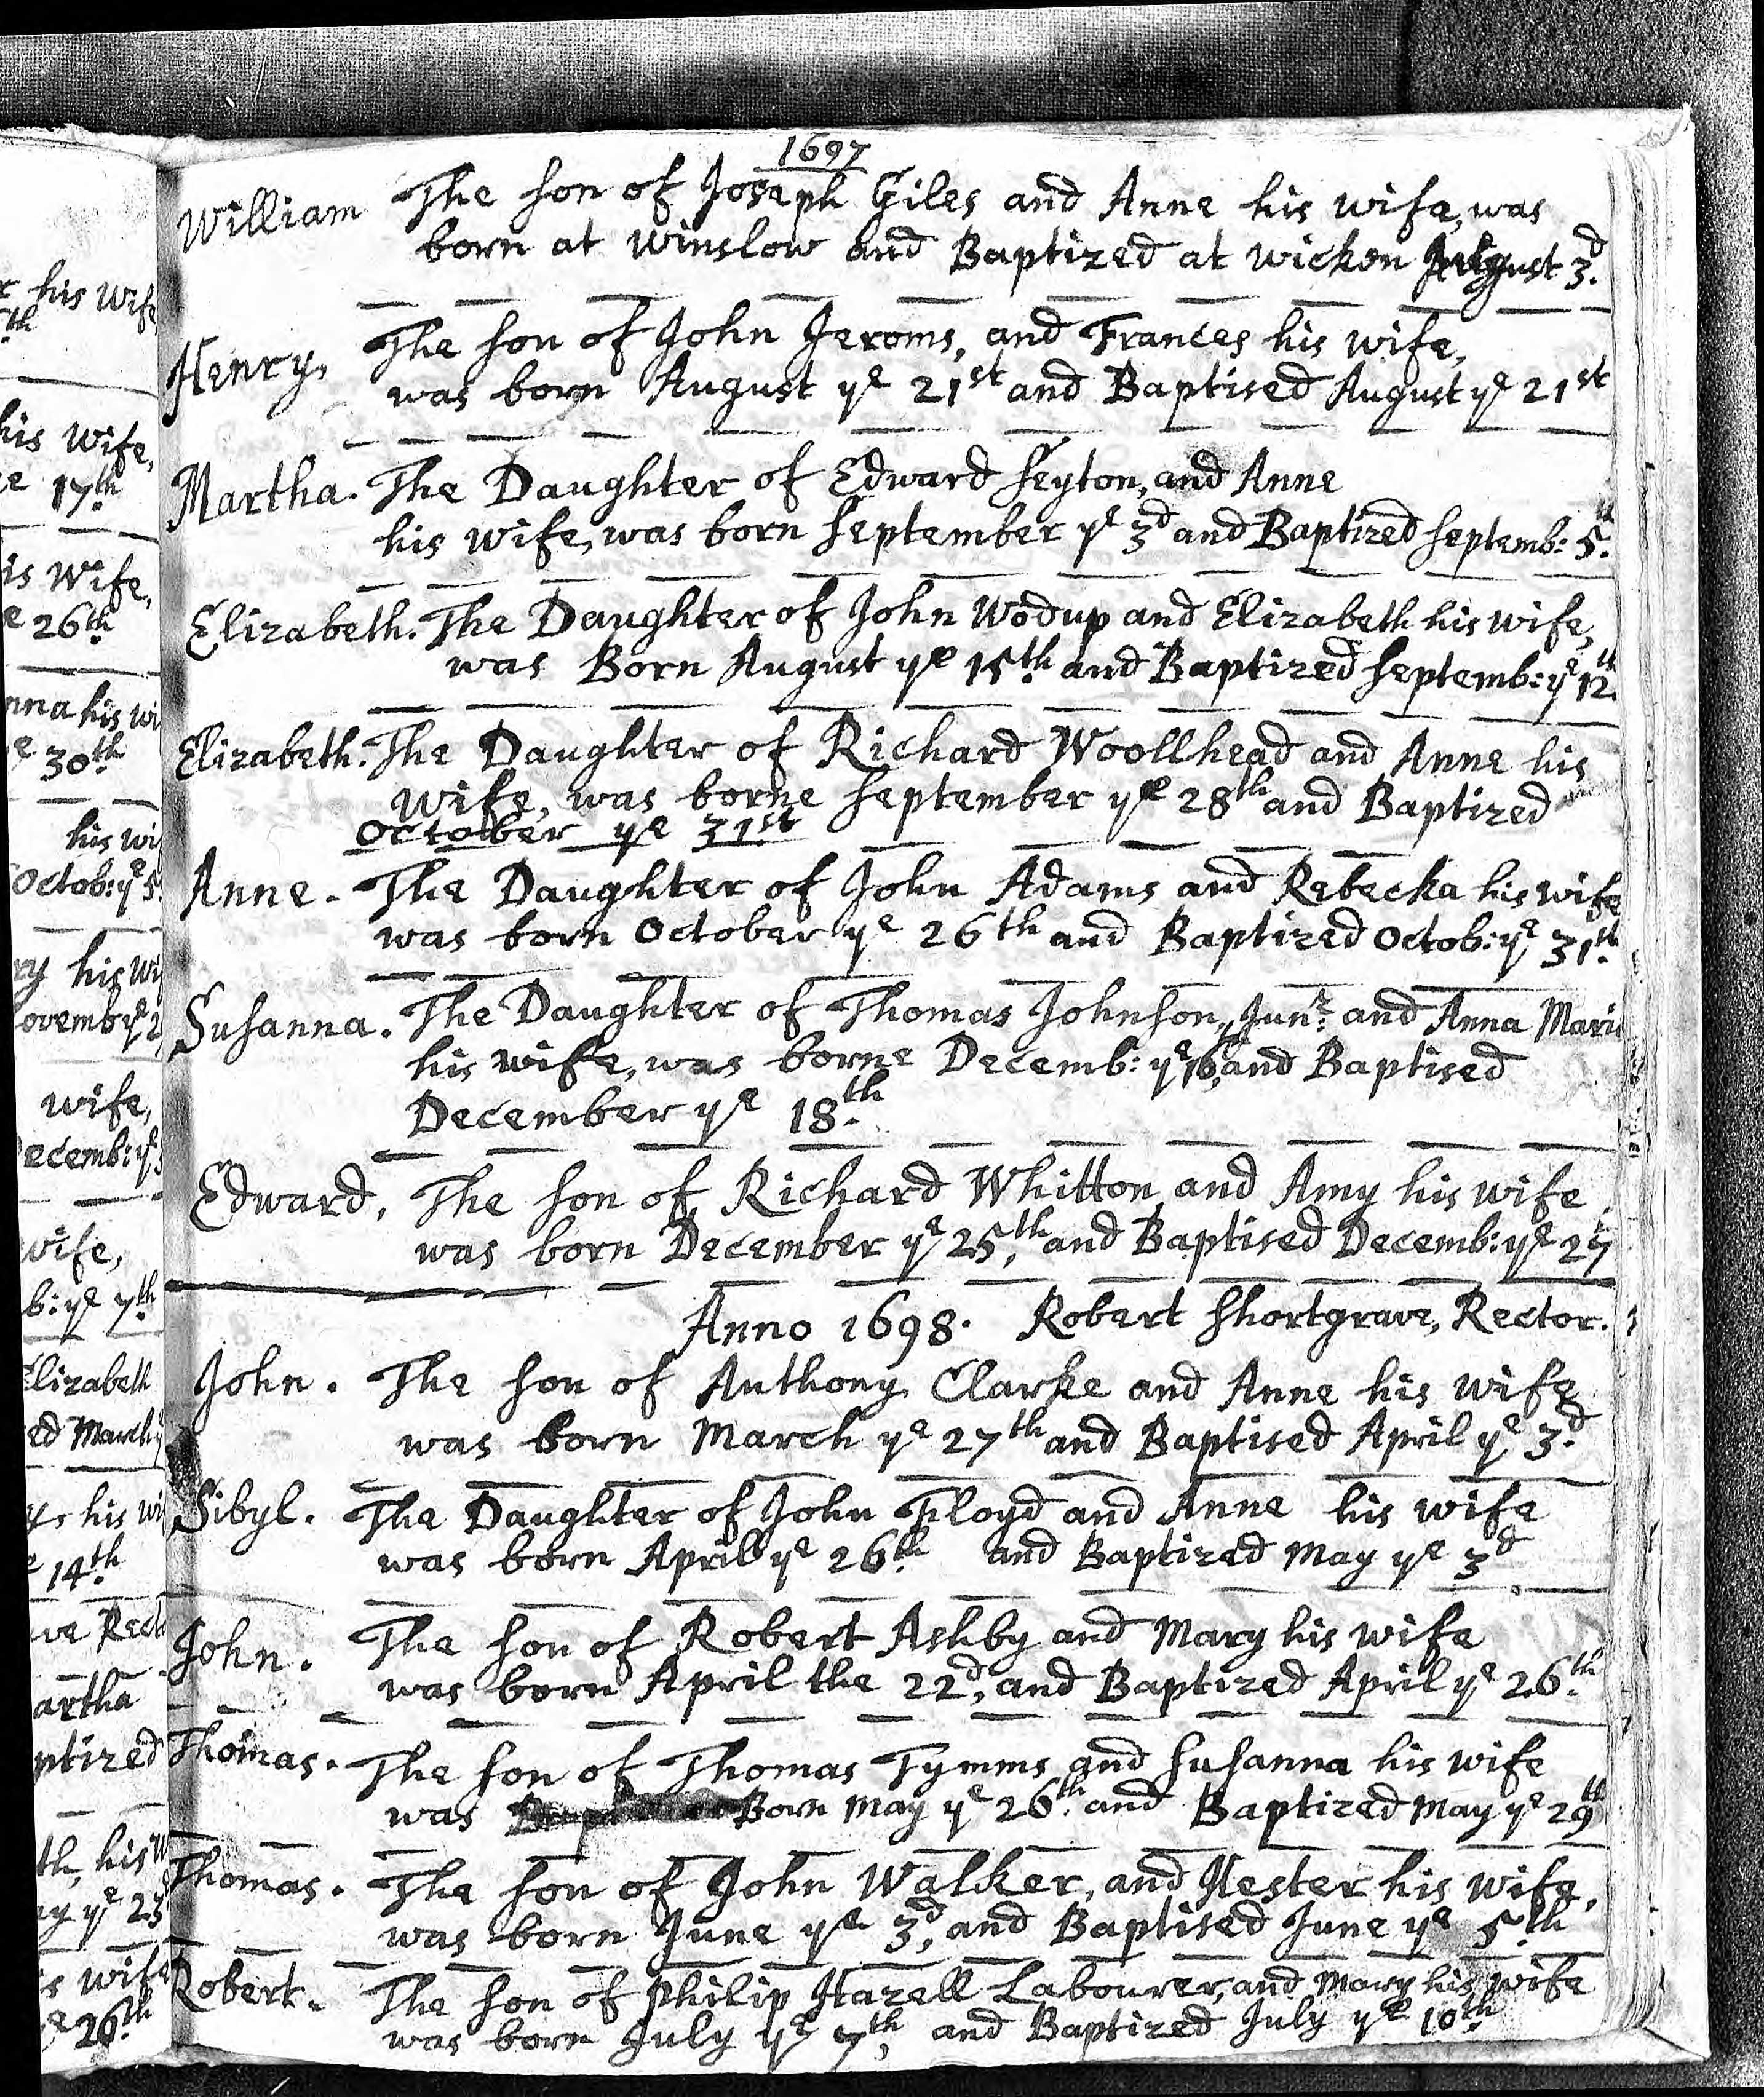 1697
William The son of Joseph Giles and Anne his wife, was
born at Winslow and Baptized at Wicken August 3d.
Henry. The son of John Jeroms, and Frances his wife,
was born August ye 21st and Baptised August ye 21st
Martha. The Daughter of Edward Seyton, and Anne
his wife, was born September ye 3d and Baptized Septemb: 5th.
Elizabeth. The Daughter of John Wodup and Elizabeth his wife,
was Born August ye 15th. and Baptized Septemb: ye 12th.
Elizabeth. The Daughter of Richard Woollhead and Anne his
wife, was borne September ye 28th and Baptized
October ye 31st
Anne. The Daughter of John Adams and Rebecka his wife
was born October ye 26th and Baptized Octob: ye 31st.
Susanna. The Daughter of Thomas Johnson, Junr: and Anna Maria
his wife, was borne Decemb: ye 16th, and Baptised
December ye 18th.
Edward, The son of Richard Whitton and Amy his wife,
was born December ye 25th, and Baptised Decemb: ye 27th
Anno 1698. Robert Shortgrave, Rector.
John. The son of Anthony Clarke and Anne his wife
was born March ye 27th and Baptised April ye 3d.
Sibyl. The Daughter of John Floyd and Anne his wife
was born April ye 26th. and Baptized May ye 3d
John. The son of Robert Ashby and Mary his wife
was born April the 22d, and Baptized April ye 26th.
Thomas. The son of Thomas Tymms and Susanna his wife
was Born May ye 26th. and Baptized May ye 29th
Thomas. The son of John Walker, and Hester his wife,
was born June ye 3d, and Baptised June ye 5th.
Robert. The son of Philip Hazell Labourer, and Mary his wife
was born July ye 7th, and Baptized July ye 10th.